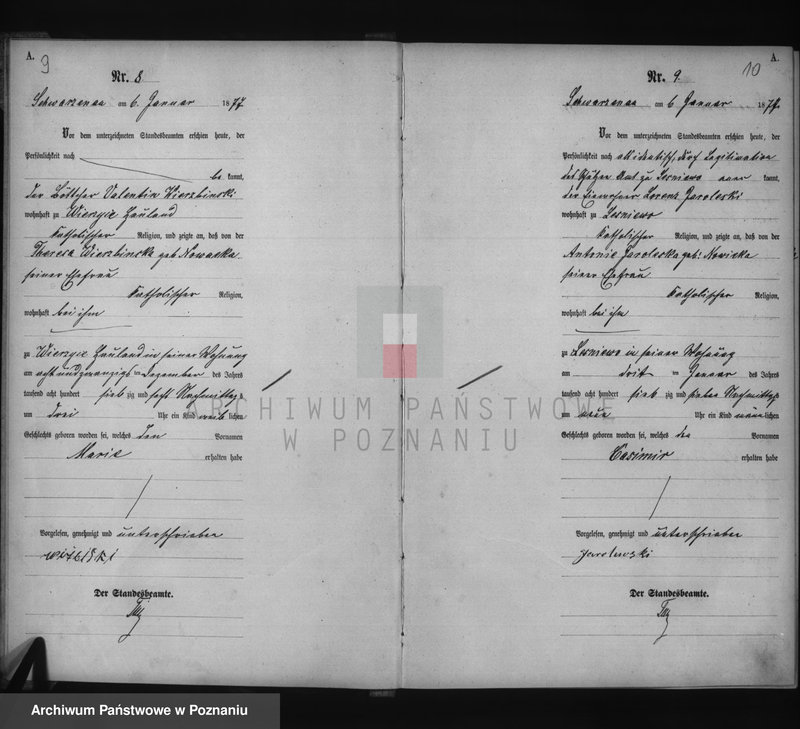 A.
9
Nr. 8
Schwarzenau am 6. Januar 1877
Vor dem unterzeichneten Standesbeamten erschien heute, der
Persönlichkeit nach
be kannt,
der Böttcher Valentin Wierzbinski
wohnhaft zu Wierzyce Hauland
katholischer Religion, und zeigte an, daß von der
Theresa Wierzbinska geb. Nowacka
seiner Ehefrau
katholischer Religion,
wohnhaft bei ihm
zu Wierzyce Hauland in seiner Wohnung
am acht und zwanzigsten Dezember des Jahres
tausend acht hundert siebzig und sechs Nachmittags
um drei Uhr ein Kind weiblichen
Geschlechts geboren worden sei, welches den Vornamen
Marie erhalten habe
Vorgelesen, genehmigt und unterschrieben
Der Standesbeamte.
A.
10
Nr. 9.
Schwarzenau am 6 Januar 1877.
Vor dem unterzeichneten Standesbeamten erschien heute, der
Persönlichkeit nach als identisch, durch Legitimation
des Schulzen Amt zu Lesniewo aner kannt,
der Einwohner Lorenz Jaroleski
wohnhaft zu Lesniewo
katholischer Religion, und zeigte an, daß von der
Antonie Jaroleska geb. Nowicka
seiner Ehefrau
katholischer Religion,
wohnhaft bei ihm
zu Lesniewo in seiner Wohnung
am dritten Januar des Jahres
tausend acht hundert siebzig und sieben Nachmittags
um neun Uhr ein Kind männlichen
Geschlechts geboren worden sei, welches den Vornamen
Casimir erhalten habe
Vorgelesen, genehmigt und unterschrieben
Der Standesbeamte.
ARCHIWUM PAŃSTWOWE
W POZNANIU
Archiwum Państwowe w Poznaniu